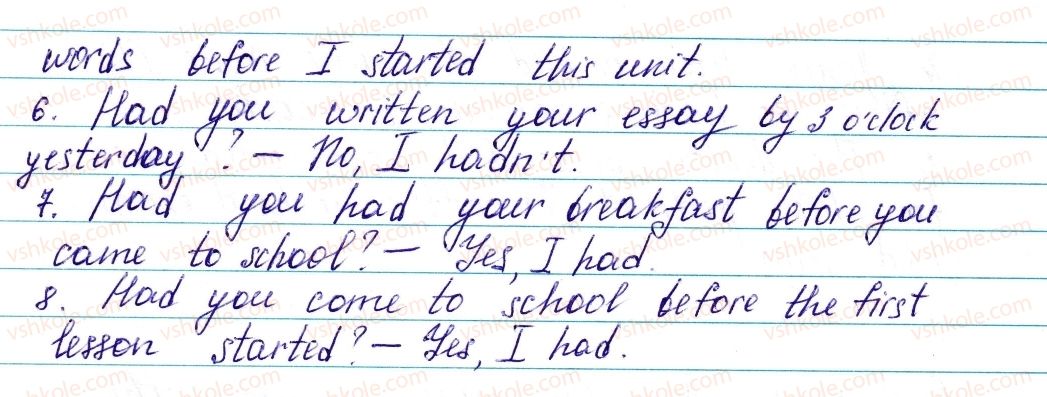 words before I started this unit.
6. Had you written your essay by 3 o'clock
yesterday? — No, I hadn't.
7. Had you had your breakfast before you
came to school? — Yes, I had.
8. Had you come to school before the first
lesson started? — Yes, I had.